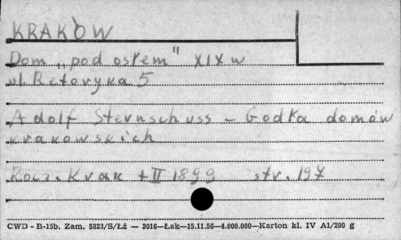 KRAKÓW
Dom „pod osłem" XIX w
ul. Retoryka 5
Adolf Sternschuss – Godła domów
krakowskich
Rocz. Krak t II 1899 str. 197
CWD - B-15b. Zam. 5323/S/Łż — 3016—Łak—15.11.56—4.000.000—Karton kl. IV A1/200 g